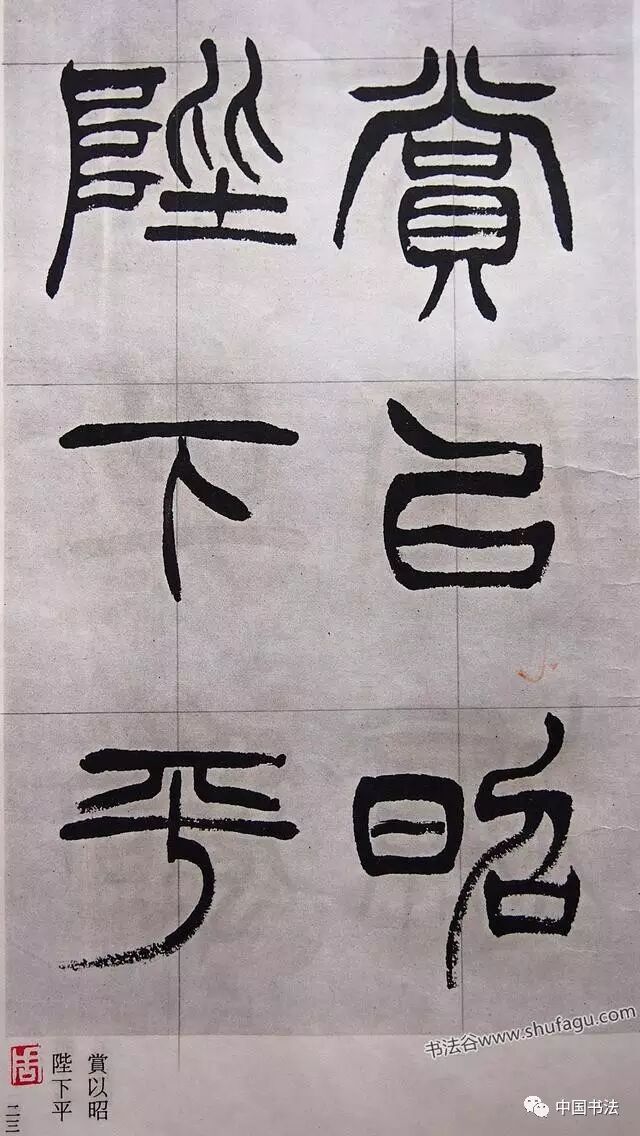 賞㠯昭
陛下平
賞以昭
陛下平
二三
书法谷www.shufagu.com
中国书法